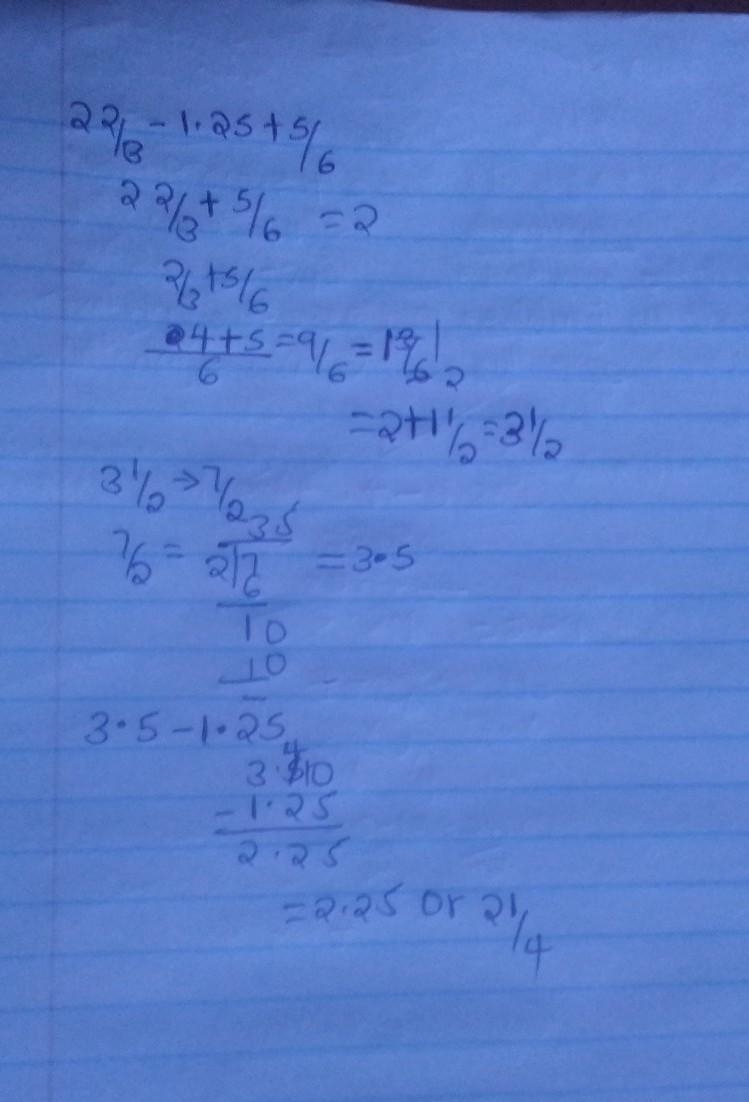 2 2/3 - 1.25 + 5/6
2 2/3 + 5/6 = 2
2/3 + 5/6
4+5/6 = 9/6 = 1 3/6 1/2
= 2+1 1/2 = 3 1/2
3 1/2 → 7/2
35
7/2 = 2|7 = 3.5
6
10
10
-
3.5 - 1.25
4
3.510
- 1.25
2.25
= 2.25 or 2 1/4